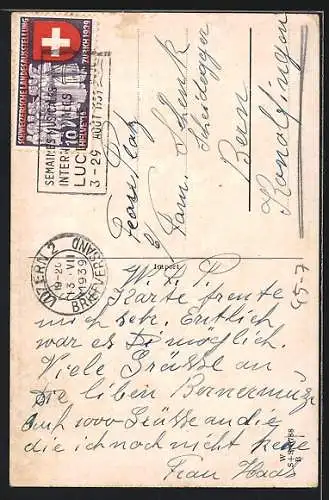 SCHWEIZERISCHE LANDESAUSSTELLUNG
ZÜRICH 1939
10
HELVETIA
SEMAINES MUSICALES
INTERNATIONALES
LUCERNE
3-29 AOÛT 1939
LUZERN 2
BRIEFVERSAND
13.VIII
1939
19-20
Platz
Fam. Schenk
Scheidegger
Bern
Konolfingen
Import
Karte freute
mich sehr. Entlich
war es Di möglich.
Viele Grüsse an
die liben Bernermuz
auf 1000 Grüsse an die
die ich noch nicht
Frau Haas
45-7
W
S+S
B